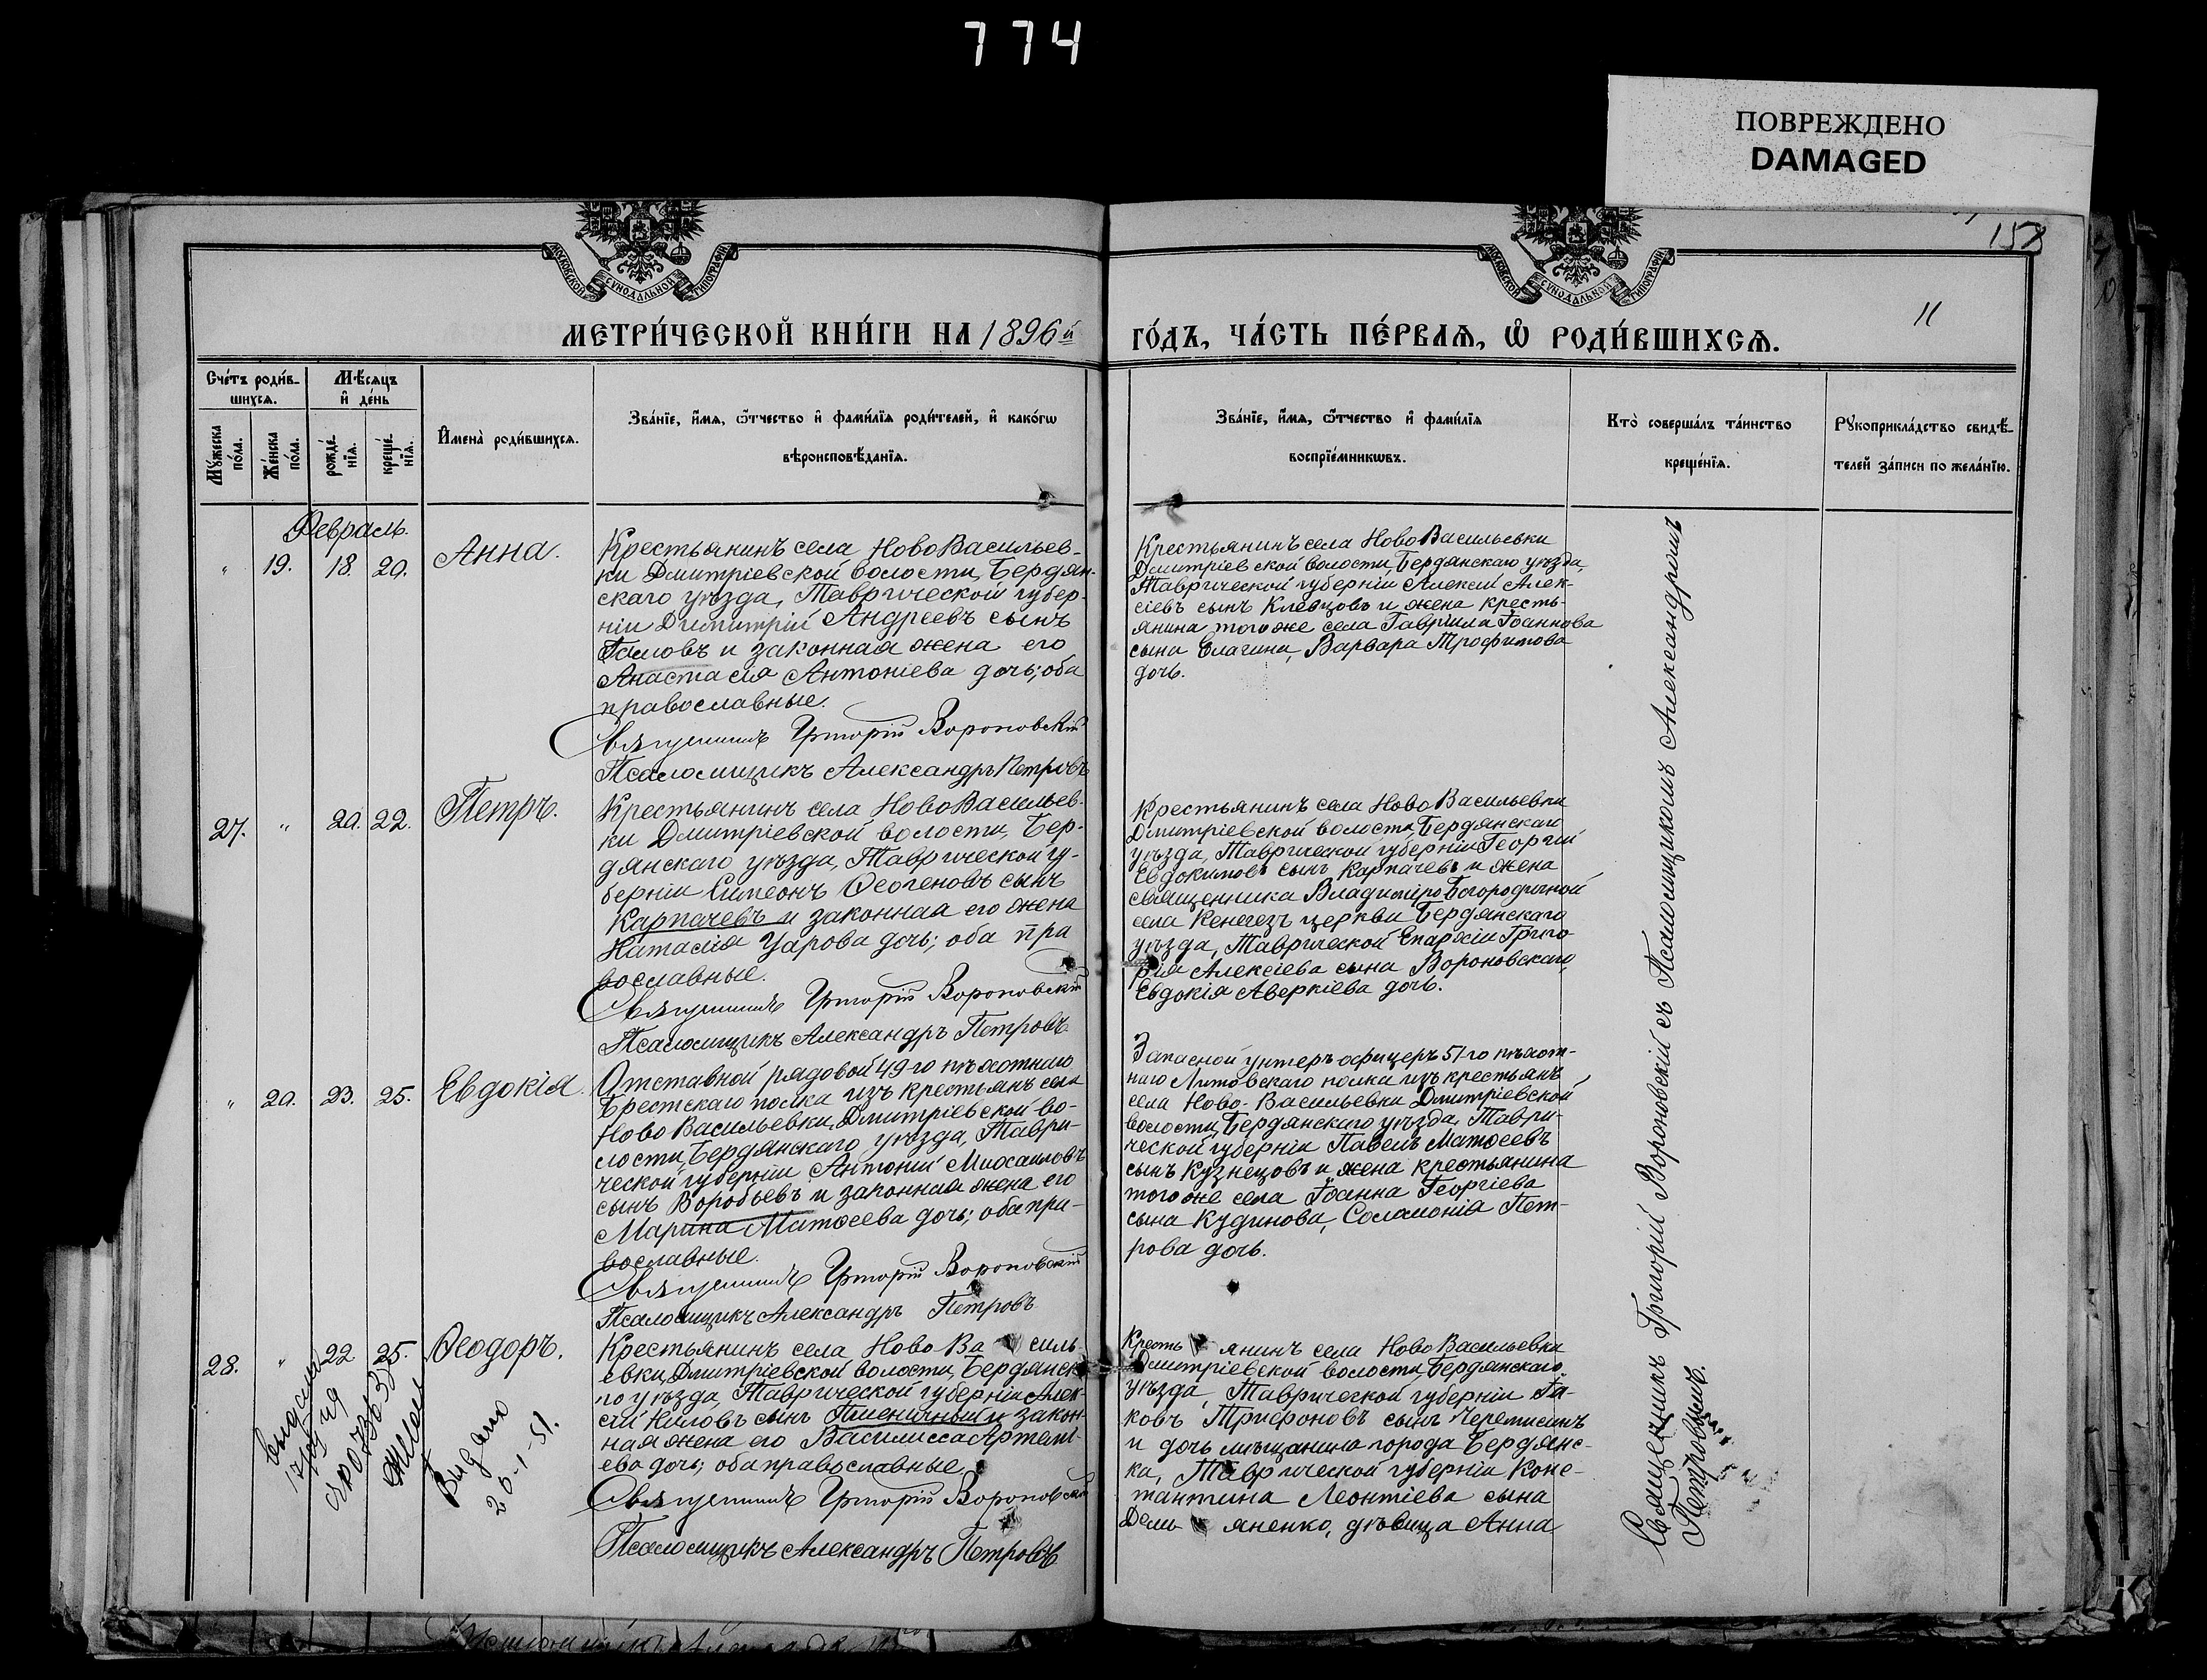 774
ПОВРЕЖДЕНО
DAMAGED
158
11
МОСКОВСКОЙ СѴНОДАЛЬНОЙ ТИПОГРАФІИ
МОСКОВСКОЙ СѴНОДАЛЬНОЙ ТИПОГРАФІИ
МЕТРИ́ЧЕСКОЙ КНИ́ГИ НА 1896й
ГО́ДЪ, ЧА́СТЬ ПЕ́РВАѦ, Ѡ҆ РОДИ́ВШИХСѦ.
Сче́тъ роди́в-
шихсѧ.
Мѣ́сѧцъ
и҆ де́нь
Мꙋ́жеска
по́ла.
Же́нска
по́ла.
рожде́-
нїѧ.
креще́-
нїѧ.
И҆мена̀ роди́вшихсѧ.
Зва́нїе, и҆́мѧ, ѻ҆́тчество и҆ фами́лїѧ роди́телей, и҆ како́гѡ
вѣроисповѣ́данїѧ.
Зва́нїе, и҆́мѧ, ѻ҆́тчество и҆ фами́лїѧ
воспрїе́мникѡвъ.
Кто̀ соверша́лъ та́инство
креще́нїѧ.
Рꙋкоприкла́дство свидѣ́-
телей за́писи по жела́нїю.
Февраль.
" 19. 18. 20.
Анна.
Крестьянинъ села НовоВасильев-
ки Дмитріевской волости, Бердян-
скаго уѣзда, Таврической губер-
ніи Димитрій Андреевъ сынъ
и законная жена его
Анастасія Антоніева дочь; оба
православные.
Священникъ Григорій Вороновскій
Псаломщикъ Александръ Петровъ
Крестьянинъ села НовоВасильевки
Дмитріевской волости, Бердянскаго уѣзда,
Таврической губерніи Алексій Алек-
сіевъ сынъ Клевцовъ и жена кресть-
янина того же села Гавріила Іоаннова
сына Елагина, Варвара Трофимова
дочь.
27. " 20. 22.
Петръ.
Крестьянинъ села НовоВасильев-
ки Дмитріевской волости, Бер-
дянскаго уѣзда, Таврической гу-
берніи Симеонъ сынъ
Карпачевъ и законная его жена
Наталія Уарова дочь; оба пра
вославные.
Священникъ Григорій Вороновскій
Псаломщикъ Александръ Петровъ
Крестьянинъ села НовоВасильевки
Дмитріевской волости, Бердянскаго
уѣзда, Таврической губерніи Георгій
Евдокимовъ сынъ Карпачевъ и жена
священника Владиміро Богородичной
села Кенегезъ церкви Бердянскаго
уѣзда, Таврической Епархіи Григо-
рія Алексіева сына Вороновскаго,
Евдокія Аверкіева дочь.
" 20. 23. 25.
Евдокія.
Отставной рядовой 49-го пѣхотнаго
Брестскаго полка изъ крестьянъ села
НовоВасильевки, Дмитріевской во-
лости, Бердянскаго уѣзда, Таври-
ческой губерніи Антоній Михаиловъ
сынъ Воробьевъ и законная жена его
Марина Матѳеева дочь; оба пра-
вославные.
Священникъ Григорій Вороновскій
Псаломщикъ Александръ Петровъ
Запасной унтеръ офицеръ 51-го пѣхот-
наго Литовскаго полка изъ крестьянъ
села Ново-Васильевки Дмитріевской
волости, Бердянскаго уѣзда, Таври-
ческой губерніи Павелъ Матѳеевъ
сынъ Кузнецовъ и жена крестьянина
того же села Іоанна Георгіева
сына Кудинова, Соломонія Пет-
рова дочь.
28. " 22 25.
Ѳеодоръ.
Выдано
20-1-51.
Крестьянинъ села Ново Ва силь-
евки, Дмитріевской волости, Бердянска-
го уѣзда, Таврической губерніи Алек-
сій Ниловъ сынъ Пшеничный и закон-
ная жена его Василисса Артемі-
ева дочь; оба православные.
Священникъ Григорій Вороновскій
Псаломщикъ Александръ Петровъ
Кресть янинъ села НовоВасильевки
Дмитріевской волости, Бердянскаго
уѣзда, Таврической губерніи Іа-
ковъ Трифоновъ сынъ Черемисинъ
и дочь мѣщанина города Бердянс-
ка, Таврической губерніи Конс-
тантина Леонтіева сына
Демь яненко, дѣвица Анна
Священникъ Григорій Вороновскій съ Псаломщикомъ Александромъ
Петровымъ.